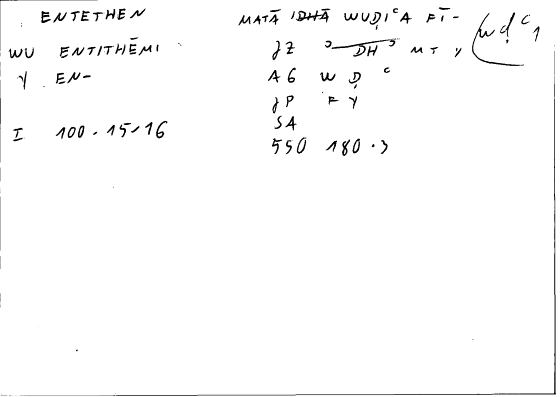 ENTETHEN
WU ENTITHĒMI
Y EN-
I 100.15-16
MATĀ IDHĀ WUḌIᶜA FĪ-
JZ ᵓ DH ᵓ MT Y
AG W Ḍ ᶜ
JP F Y
SA
550 180.3
wḍᶜ1